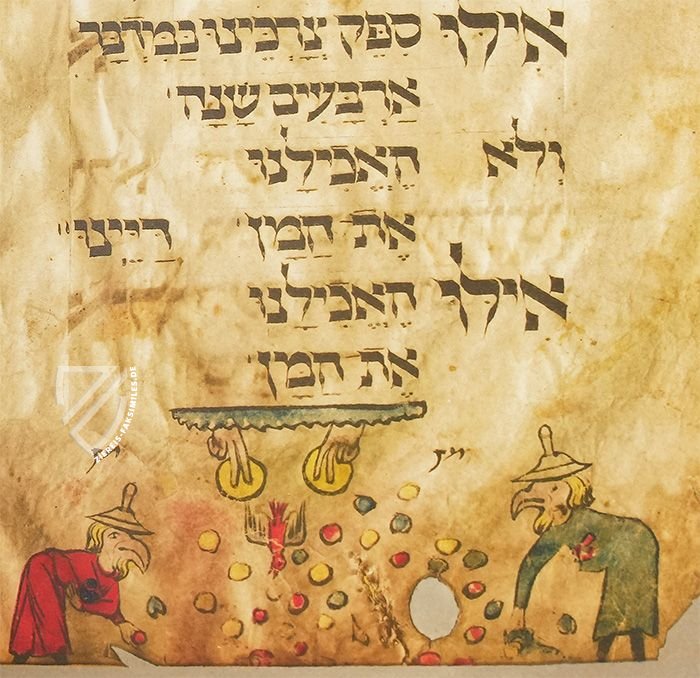 אִילוּ סִפֵּק צָרְכֵּינוּ בַּמִדְבָּר
אַרְבָּעִים שָׁנָה
וְלֹא הֶאֱכִילָנוּ
אֶת הַמָן דַיֵינוּ
אִילוּ הֶאֱכִילָנוּ
אֶת הַמָן
ZIEREIS-FAKSIMILES.DE